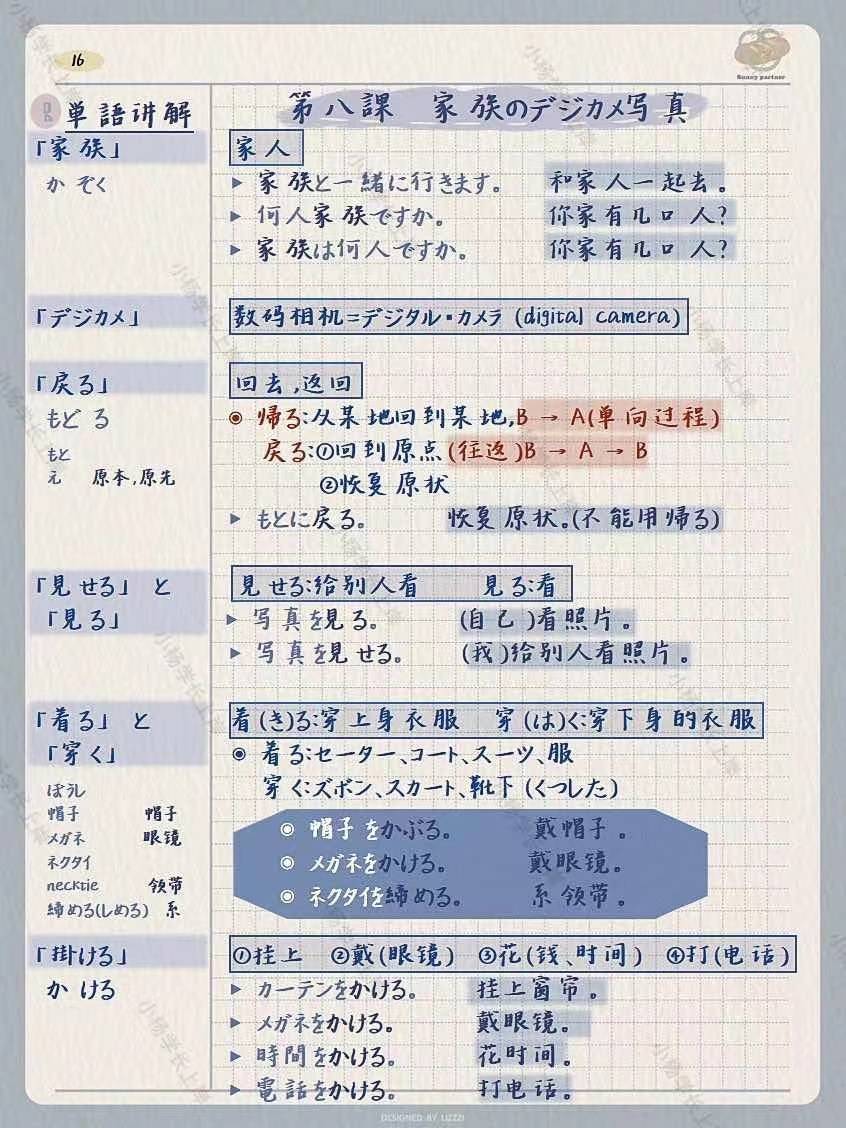 16
Sunny partner
単語讲解
第八課 家族のデジカメ写真
「家族」
かぞく
家人
▶ 家族と一緒に行きます。 和家人一起去。
▶ 何人家族ですか。 你家有几口人?
▶ 家族は何人ですか。 你家有几口人?
「デジカメ」
数码相机=デジタル・カメラ (digital camera)
「戻る」
もどる
もと
元 原本,原先
回去,返回
◉ 帰る:从某地回到某地,B → A(单向过程)
戻る:①回到原点(往返)B → A → B
②恢复原状
▶ もとに戻る。 恢复原状。(不能用帰る)
「見せる」 と
「見る」
見せる:给别人看 見る:看
▶ 写真を見る。 (自己)看照片。
▶ 写真を見せる。 (我)给别人看照片。
「着る」 と
「穿く」
ぼうし
帽子 帽子
メガネ 眼镜
ネクタイ
necktie 领带
締める(しめる) 系
着(き)る:穿上身衣服 穿(は)く:穿下身的衣服
◉ 着る:セーター、コート、スーツ、服
穿く:ズボン、スカート、靴下(くつした)
◉ 帽子をかぶる。 戴帽子。
◉ メガネをかける。 戴眼镜。
◉ ネクタイを締める。 系领带。
「掛ける」
かける
①挂上 ②戴(眼镜) ③花(钱、时间) ④打(电话)
▶ カーテンをかける。 挂上窗帘。
▶ メガネをかける。 戴眼镜。
▶ 時間をかける。 花时间。
▶ 電話をかける。 打电话。
DESIGNED BY LIZZI